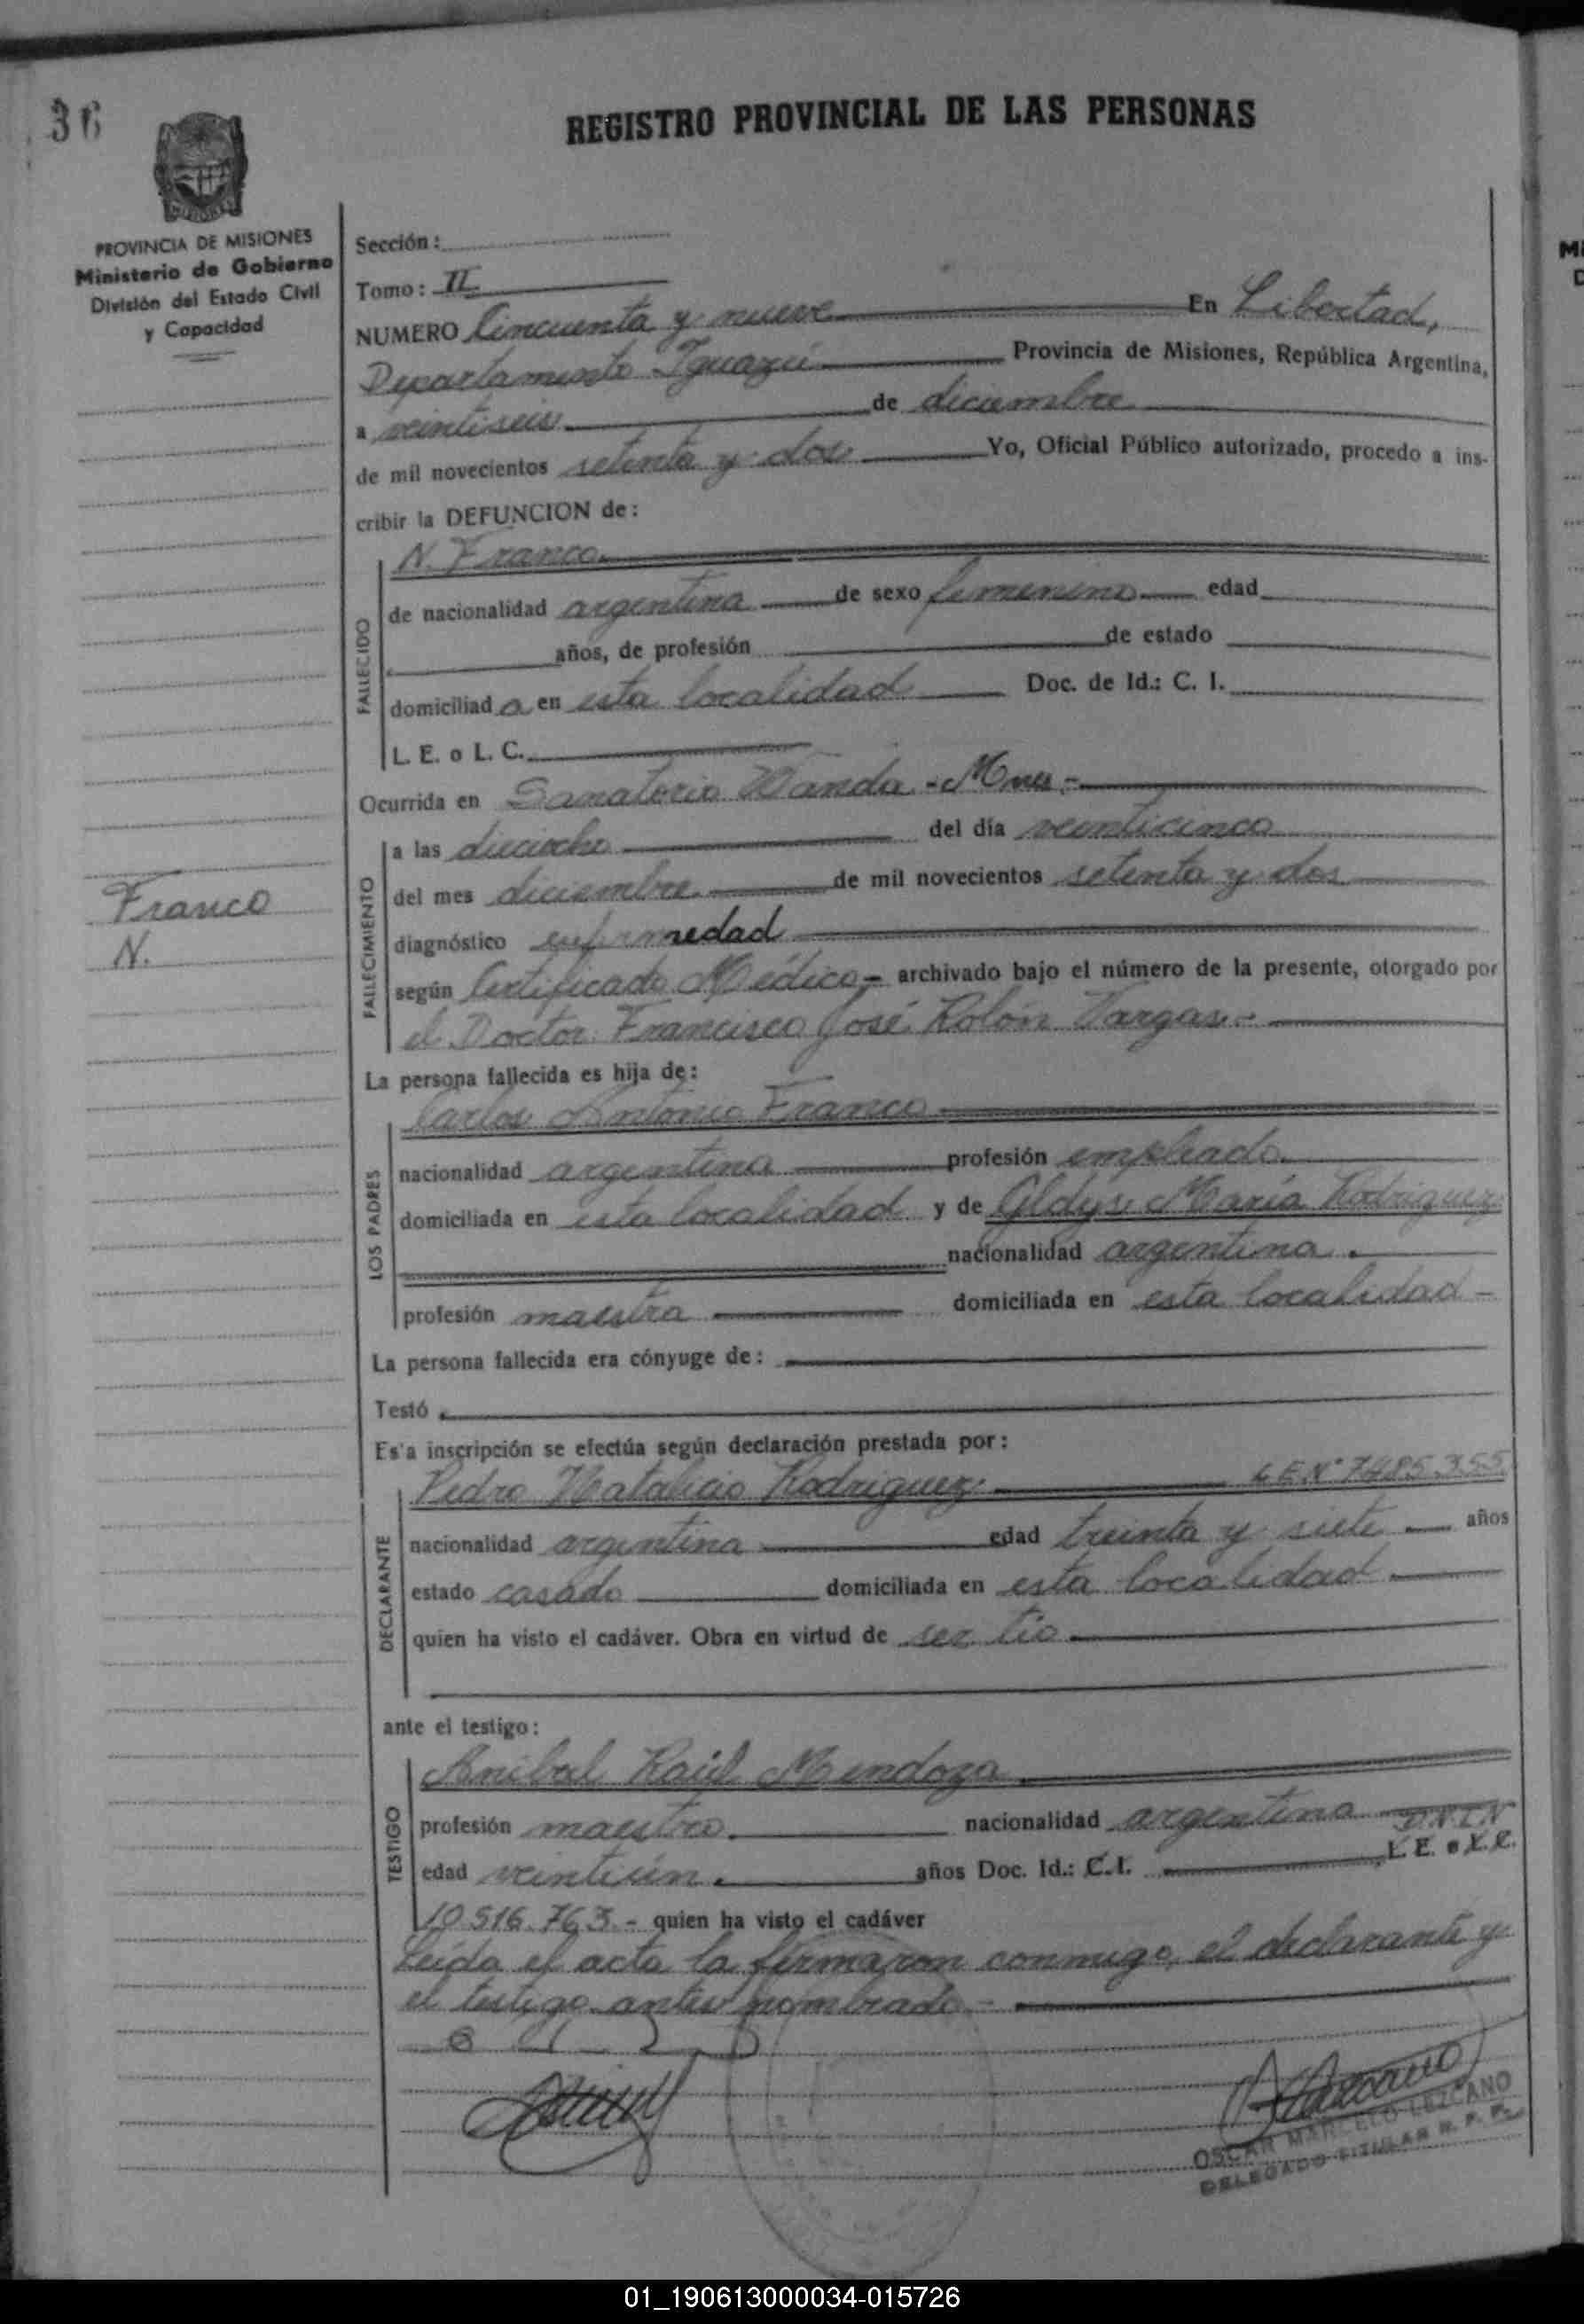 36
REGISTRO PROVINCIAL DE LAS PERSONAS
MISIONES
PROVINCIA DE MISIONES
Ministerio de Gobierno
División del Estado Civil
y Capacidad
Sección:
Tomo: II
NUMERO Cincuenta y nueve En Libertad,
Departamento Iguazú Provincia de Misiones, República Argentina,
a veintiseis de diciembre
de mil novecientos setenta y dos Yo, Oficial Público autorizado, procedo a ins-
cribir la DEFUNCION de:
N. Franco
FALLECIDO
de nacionalidad argentina de sexo femenino edad
años, de profesión de estado
domiciliad a en esta localidad Doc. de Id.: C. I.
L. E. o L. C.
Ocurrida en Sanatorio Wanda - Mnes.-
FALLECIMIENTO
a las dieciocho del día veinticinco
del mes diciembre de mil novecientos setenta y dos
Franco
N.
diagnóstico enfermedad
según Certificado Médico - archivado bajo el número de la presente, otorgado por
el Doctor Francisco José Rolón Vargas.-
La persona fallecida es hija de:
Carlos Antonio Franco
LOS PADRES
nacionalidad argentina profesión empleado
domiciliada en esta localidad y de Gldys María Rodriguez
nacionalidad argentina.
profesión maestra domiciliada en esta localidad -
La persona fallecida era cónyuge de:
Testó
Es'a inscripción se efectúa según declaración prestada por:
Pedro Natalicio Rodriguez L E Nº 7485.355
DECLARANTE
nacionalidad argentina edad treinta y siete años
estado casado domiciliada en esta localidad
quien ha visto el cadáver. Obra en virtud de ser tio
ante el testigo:
Anibal Raúl Mendoza
TESTIGO
profesión maestro nacionalidad argentina D.N.I.N
edad veintiún años Doc. Id.: C.I. L. E. o L. C.
10.516.763.- quien ha visto el cadáver
Leída el acta la firmaron conmigo, el declarante y
el testigo antes nombrado.-
OSCAR MARCELO LEZCANO
DELEGADO TITULAR R. P. P.
01_190613000034-015726